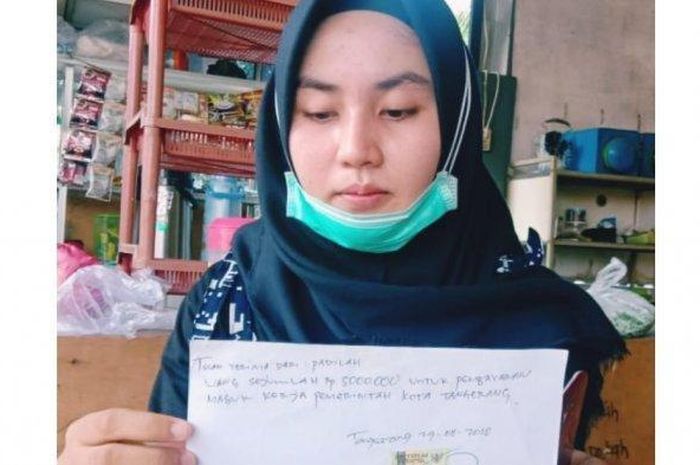 TELAH TERIMA DARI : PADILAH
UANG SEJUMLAH Rp 5000.000' UNTUK PEMBAYARAN
MASUK KERJA PEMERINTAH KOTA TANGERANG.
Tangerang 29-08-2020